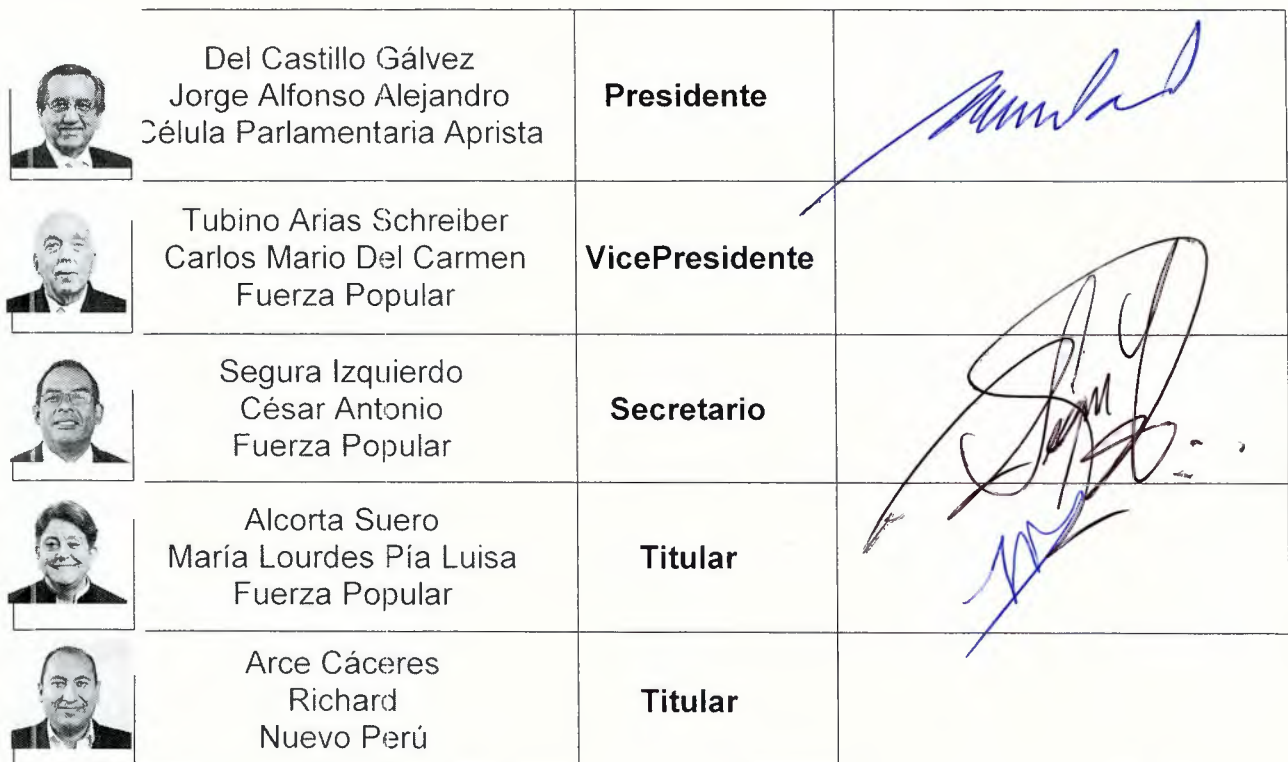 Del Castillo Gálvez
Jorge Alfonso Alejandro
Célula Parlamentaria Aprista
Presidente
Tubino Arias Schreiber
Carlos Mario Del Carmen
Fuerza Popular
VicePresidente
Segura Izquierdo
César Antonio
Fuerza Popular
Secretario
Alcorta Suero
María Lourdes Pía Luisa
Fuerza Popular
Titular
Arce Cáceres
Richard
Nuevo Perú
Titular